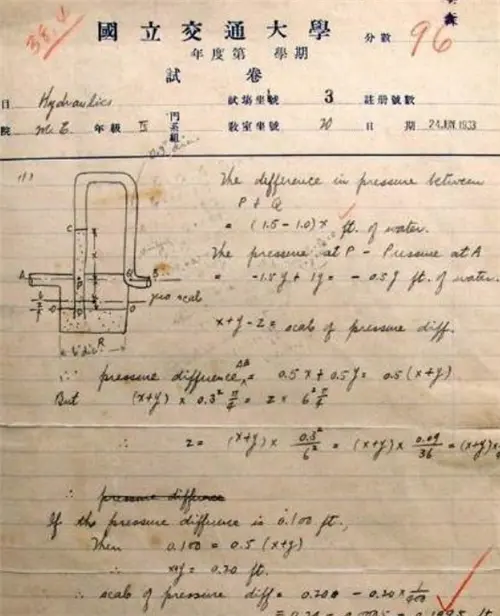 38.4
國立交通大學
年度第 學期
試卷
分數 96
日 Hydraulics 試場坐號 3 註册號數
院 M.E. 年級 IV 門系組 教室坐號 20 日期 24 JUN 1933
0.3" dia.
(1)
The difference in pressure between
P & Q
= (1.5 - 1.0) x ft. of water.
The pressure at P - Pressure at A
= -1.5y + 1y = -0.5y ft. of water.
C
A
B
P
Q
O
O
zero scale
R
6" dia.
x+y-z = scale of pressure diff.
∴ pressure difference AB = 0.5x + 0.5y = 0.5 (x+y)
But (x+y) x 0.3² π/4 = z x 6² π/4
∴ z = (x+y) x 0.3²/6² = (x+y) x 0.09/36 = (x+y)x
∴ pressure difference
If the pressure difference is 0.100 ft.,
Then 0.100 = 0.5 (x+y)
∴ x+y = 0.20 ft.
∴ scale of pressure diff = 0.200 - 0.20 x 1/400
= 0.20 - 0.0005 = 0.1995 ft.